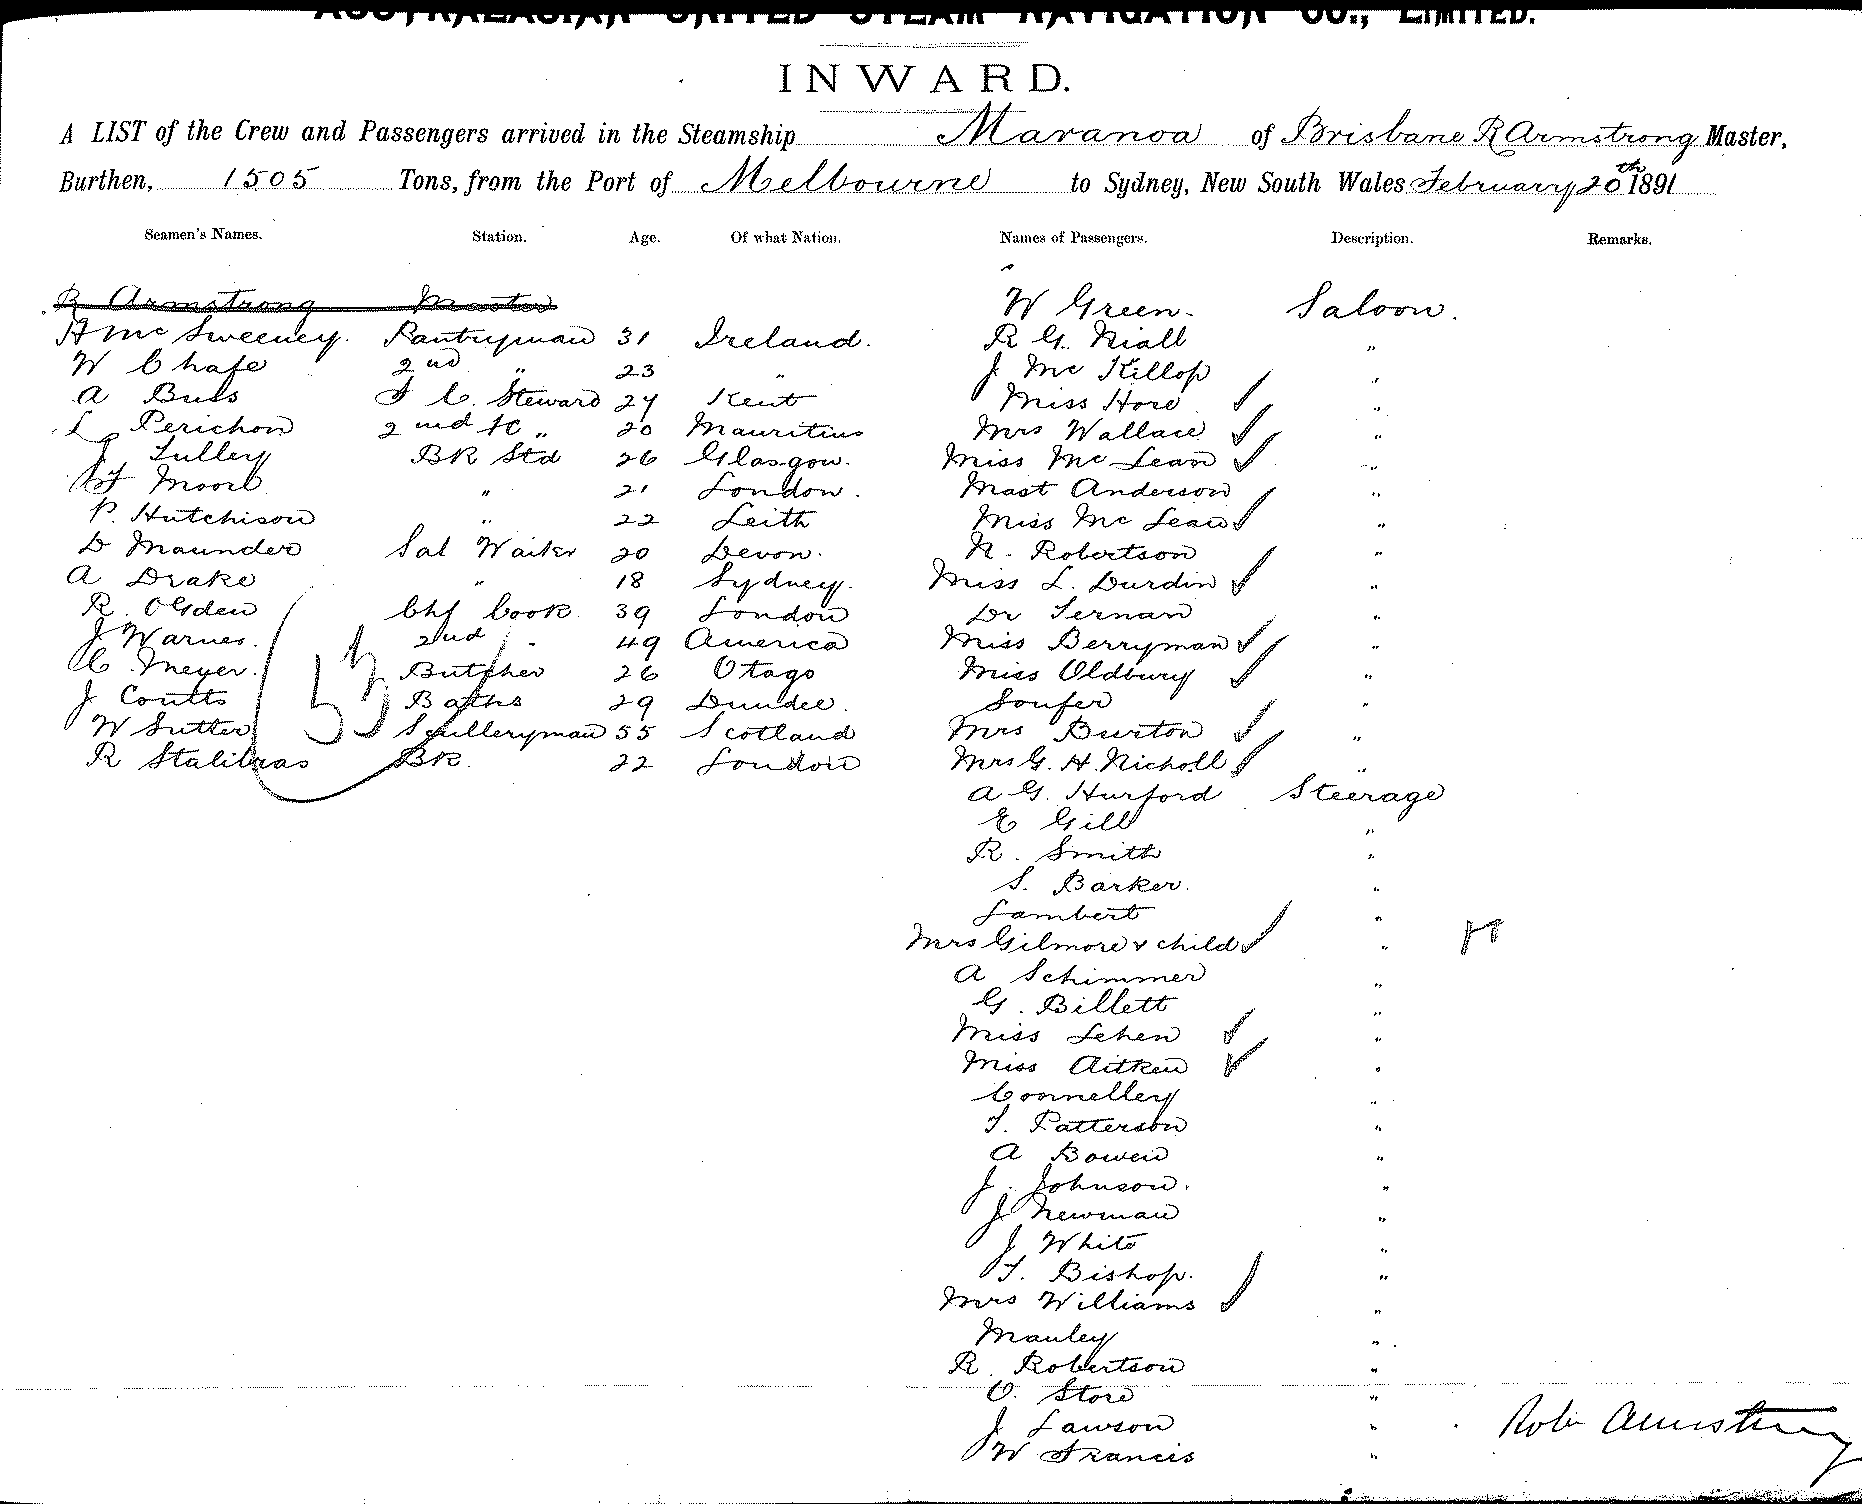 AUSTRALASIAN UNITED STEAM NAVIGATION CO., LIMITED.
INWARD.
A LIST of the Crew and Passengers arrived in the Steamship Maranoa of Brisbane R Armstrong Master,
Burthen, 1505 Tons, from the Port of Melbourne to Sydney, New South Wales February 20th 1891
Seamen's Names. Station. Age. Of what Nation. Names of Passengers. Description. Remarks.
R Armstrong Master W Green Saloon.
H Mc Sweeney. Pantryman 31 Ireland. R G. Niall "
W Chafe 2nd " 23 " J Mc Killop "
A Buls F C. Steward 24 Kent Miss Hore "
L Perichon 2nd SC " 20 Mauritius Mrs Wallace "
J Tulley BR Std 26 Glasgow. Miss Mc Lean "
Moore " 21 London. Mast Anderson "
P. Hutchison " 22 Leith Miss Mc Lean "
D Maunder Sal Waiter 20 Devon. N. Robertson "
A Drake " 18 Sydney. Miss L. Durdin "
R. Ogden Chf Cook 39 London Dr Ternan "
J Warnes. 2nd " 49 America Miss Berryman "
C. Meyer. Butcher 26 Otago Miss Oldbury "
J Coutts Baths 29 Dundee. Soufer "
W Sutter Sculleryman 55 Scotland Mrs Burton "
R Stalibras BR. 22 London Mrs G. H. Nicholl "
A G. Hurford Steerage
E Gill "
R. Smith "
S. Barker. "
Lambert "
Mrs Gilmore & child "
A Schimmer "
G. Billett "
Miss Lehen "
Miss Aitken "
Connelley "
T. Patterson "
A Bowen "
J. Johnson. "
J Newman "
J White "
T. Bishop. "
Mrs Williams "
Manley "
R. Robertson "
O. Store "
J Lawson "
W Francis "
Robt Armstrong